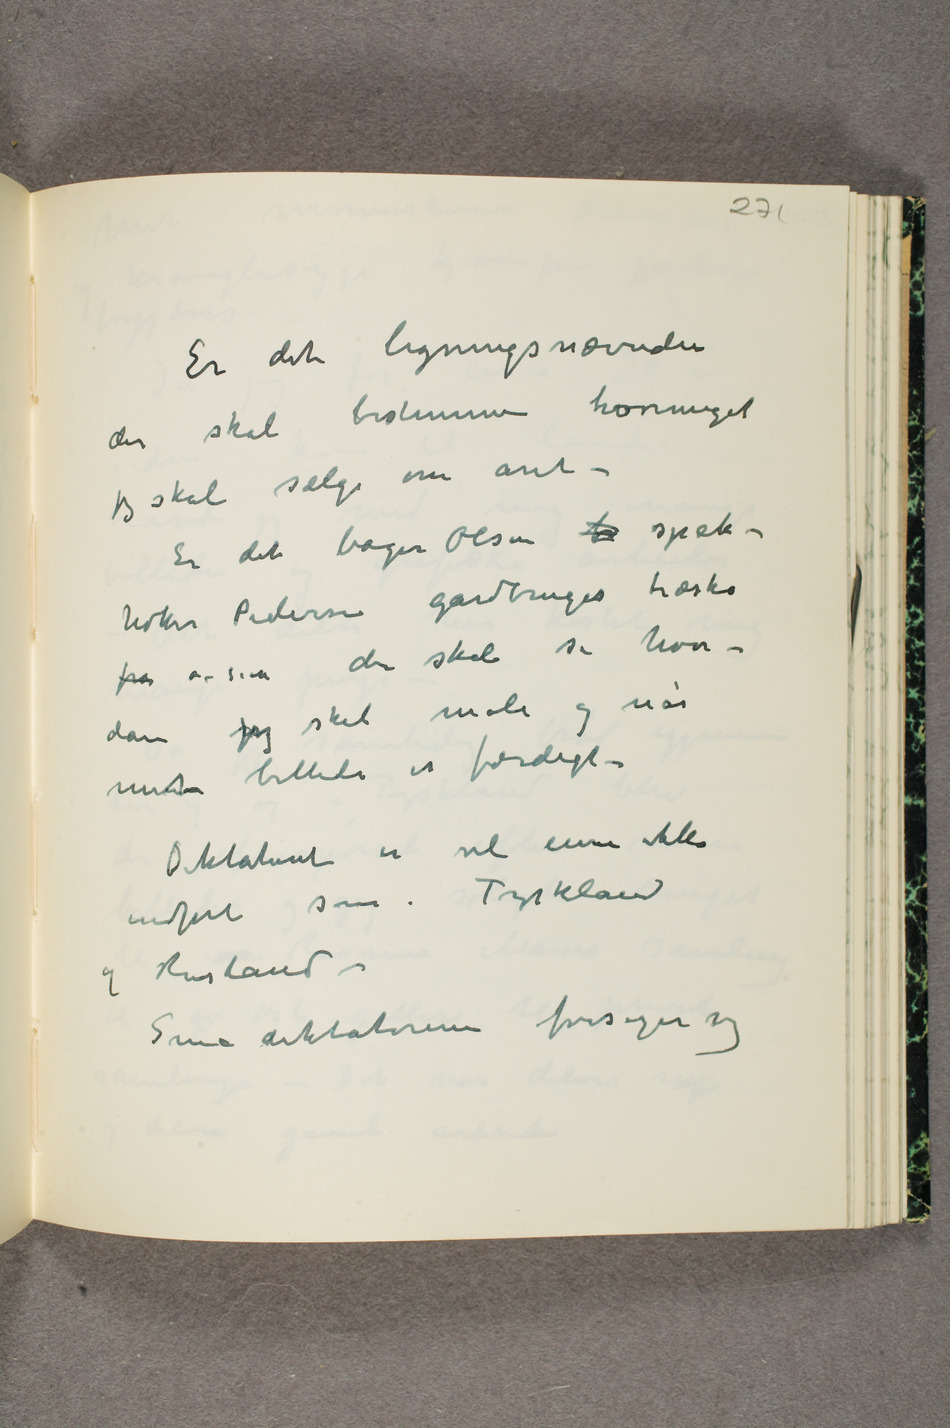 271
Er det ligningsnævnden
der skal bestemme hvormeget
jeg skal sælge om aret –
Er det bager Olsen spæk-
høker Pedersen gardbruger træsko
der skal se hvor-
dan jeg skal male og når
mit billede er færdigt –
Diktaturet er vel ennu ikke
indført som i Tyskland
og Rusland –
Små diktatorerne forsøger sig